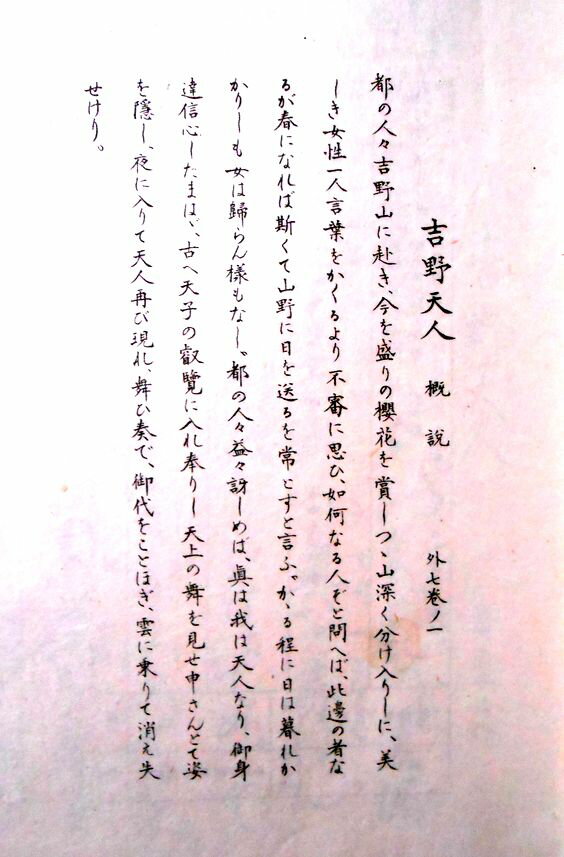 吉野天人 概説 外七巻ノ一
都の人々吉野山に赴き、今を盛りの櫻花を賞しつゝ山深く分け入りしに、美
しき女性一人言葉をかくるより不審に思ひ、如何なる人ぞと問へば、此邊の者な
るが春になれば斯くて山野に日を送るを常とすと言ふ。かゝる程に日は暮れか
かりしも女は歸らん様もなし。都の人々益々訝しめば、眞は我は天人なり、御身
達信心したまはゞ、古へ天子の叡覽に入れ奉りし天上の舞を見せ申さんとて姿
を隠し、夜に入りて天人再び現れ、舞ひ奏で、御代をことほぎ、雲に乗りて消え失
せけり。